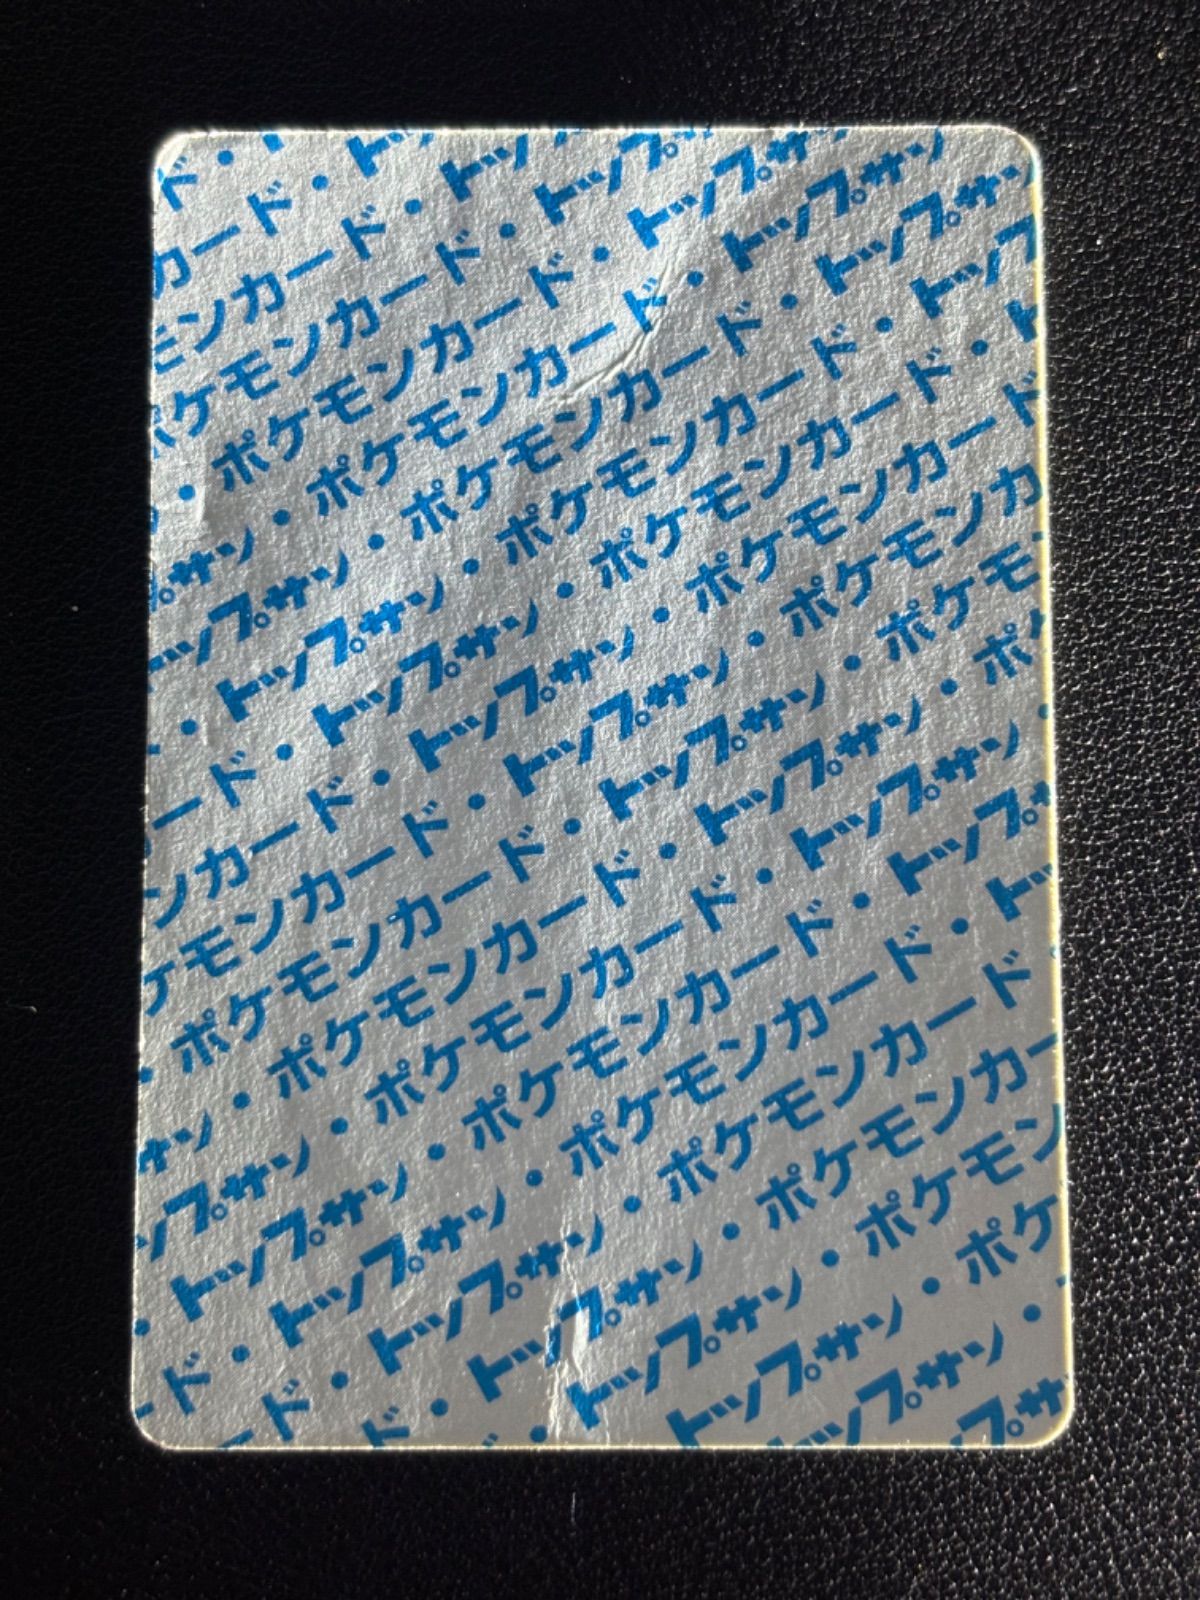 ド・
カード・ト
モンカード・トッ
ポケモンカード・トップサ
・ポケモンカード・トップサ
プサン・ポケモンカード・トップサン
トップサン・ポケモンカード・トップサン
・トップサン・ポケモンカード・トップ
ード・トップサン・ポケモンカード・ト
ンカード・トップサン・ポケモンカード
ケモンカード・トップサン・ポケモンカ
・ポケモンカード・トップサン・ポケモ
サン・ポケモンカード・トップサン・ポ
ップサン・ポケモンカード・トップサン・
・トップサン・ポケモンカード・トップ
ド・トップサン・ポケモンカード・トッ
ド・トップサン・ポケモンカード・
ド・トップサン・ポケモンカー
・トップサン・ポケモン
トップサン・ポケ
ップサン・
プサ